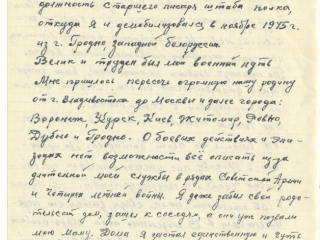 должность старшего писаря штаба полка,
откуда я и демобилизовался в ноябре 1945 г.
из г. Гродно западной Белоруссии.
Велик и труден был мой военный путь
Мне пришлось пересечь огромную нашу родину
от г. Владивостока до Москвы и далее города:
Воронеж, Курск, Киев, Житомир, Ровно,
Дубно и Гродно. О боевых действиях и эпи-
зодах нет возможности всё описать из за
длительной моей службы в рядах Советской Армии
и четырех летней войны. Я даже забыл свой роди-
тельский дом, зашел к соседям, а они уж позвали
мою маму. Дома я застал единственную и чуть